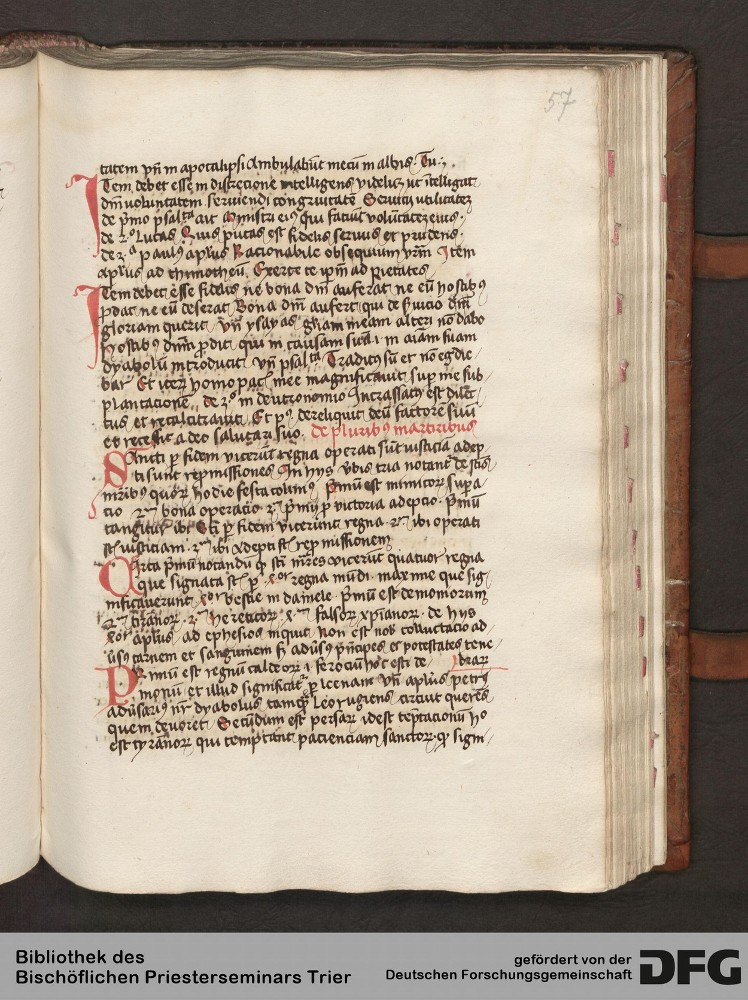 57
tatem vn̄ in apocalipsi Ambulabūt mecū in albis
Item debet esse in discrecione intelligens videlicz ut ītelligat
dm̄ voluntatem serviendi congruitatē Serviēti utilitatēz
de p̄mo psalta ait Ministri eiꝰ qui faciūt volūtatez eius
de 2o lucas Quis putas est fidelis servus et prudens
de 3a paulꝰ apl̄us Racionabile obsequium vr̄m Item
apl̄us ad thimotheū Exerce te ipm̄ ad pietatēz
Item debet esse fidelis ne bona dn̄i auferat ne eū hostibꝰ
ꝓdat ne eū deserat Bona dn̄i aufert qui de ſ̄vicio dn̄i
gloriam querit vn̄ ysayas gl̄iam meam alteri nō dabo
hostibꝰ dn̄m ꝓdit qui in causam suā i in aīam suam
dyabolū introducit vn̄ psalta Traditꝰ sū et nō egdie
bar Et iterū homo pac̄ mee magnificavit sup me sub
plantacionē de 3o in deutronomio Incrassatꝰ est dilc̄
tus et recalcitravit Et pꝰ dereliquit deū factorē suū
et recessit a deo salutari suo de pluribꝰ martiribus
Sancti p̱ fidem vicerūt regna operati sūt iusticiā adep
ti sunt repmissiones In hijs vbis tria notant̄ de sc̄is
mr̄ibꝰ quoꝝ hodie festa colimꝰ p̄mū est inimicoꝝ supa
cio 2m bona operacio 3m p̄mij p̱ victoriā adepcio p̄mū
tangitur ibi Sc̄i p̱ fidem vicerunt regna 2m ibi operati
st̄ iusticiam 3m ibi adepti st̄ repmissionem
Circa p̄mū notandū ꝙ sc̄i mr̄es vicerūt quatuor regna
que signata st̄ p̱ 4or regna mūdi maxime que sig
nificaverunt 4or bestie in daniele p̄mū est demoniorum
2m tirānoꝝ 3m hereticoꝝ 4m falsoꝝ xp̄ianoꝝ de hijs
4or apl̄us ad ephesios inquit Non est nob̄ colluctacio ad
ūsꝰ carnem et sanguinem s̄ adūsꝰ p̄ncipes et potestates tene
braꝝ
Primū est regnū caldeoꝝ i ferociū hoc est de
monū et illud significat̄ p̱ leenam vn̄ apl̄us petrꝰ
adūsariꝰ nr̄ dyabolus tamqͣ leo rugiens circuit querēs
quem devoret Secūdum est persaꝝ idest tēptacionū ho
est tyrānoꝝ qui temptant pacienciam sanctoꝝ ꝙ sign
Bibliothek des
Bischöflichen Priesterseminars Trier
gefördert von der
Deutschen Forschungsgemeinschaft
DFG